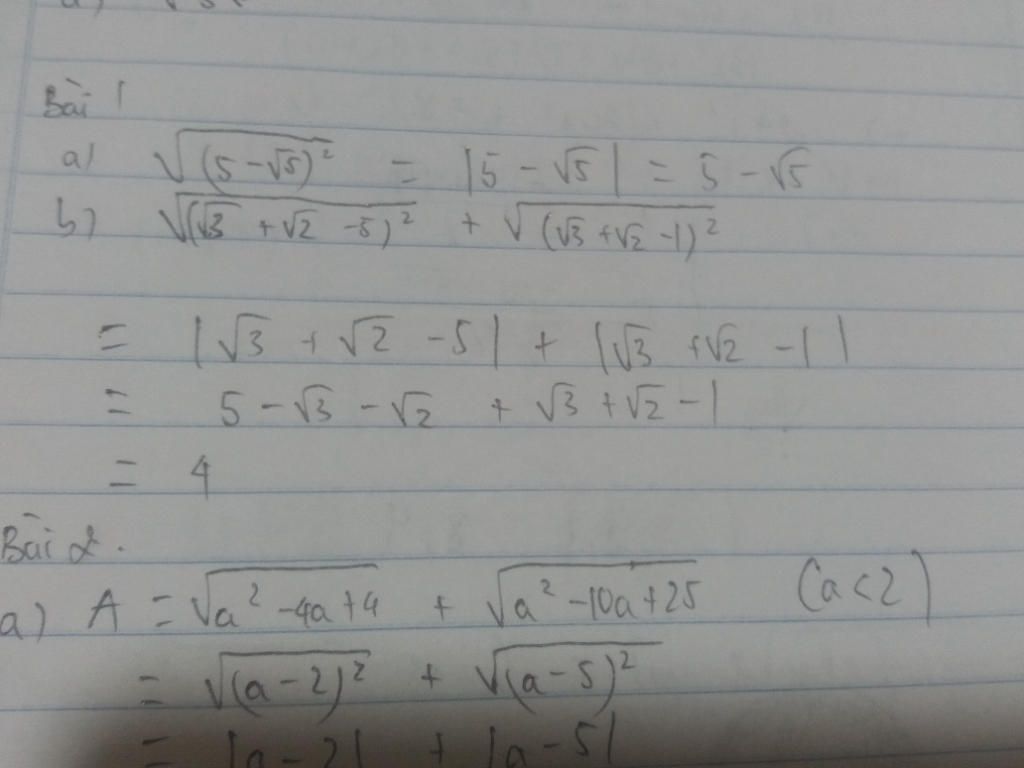 Bài 1
a) √(5 - √5)² = |5 - √5| = 5 - √5
b) √(√3 + √2 - 5)² + √(√3 + √2 - 1)²
= |√3 + √2 - 5| + |√3 + √2 - 1|
= 5 - √3 - √2 + √3 + √2 - 1
= 4
Bài 2.
a) A = √a² - 4a + 4 + √a² - 10a + 25 (a < 2)
= √(a - 2)² + √(a - 5)²
= |a - 2| + |a - 5|